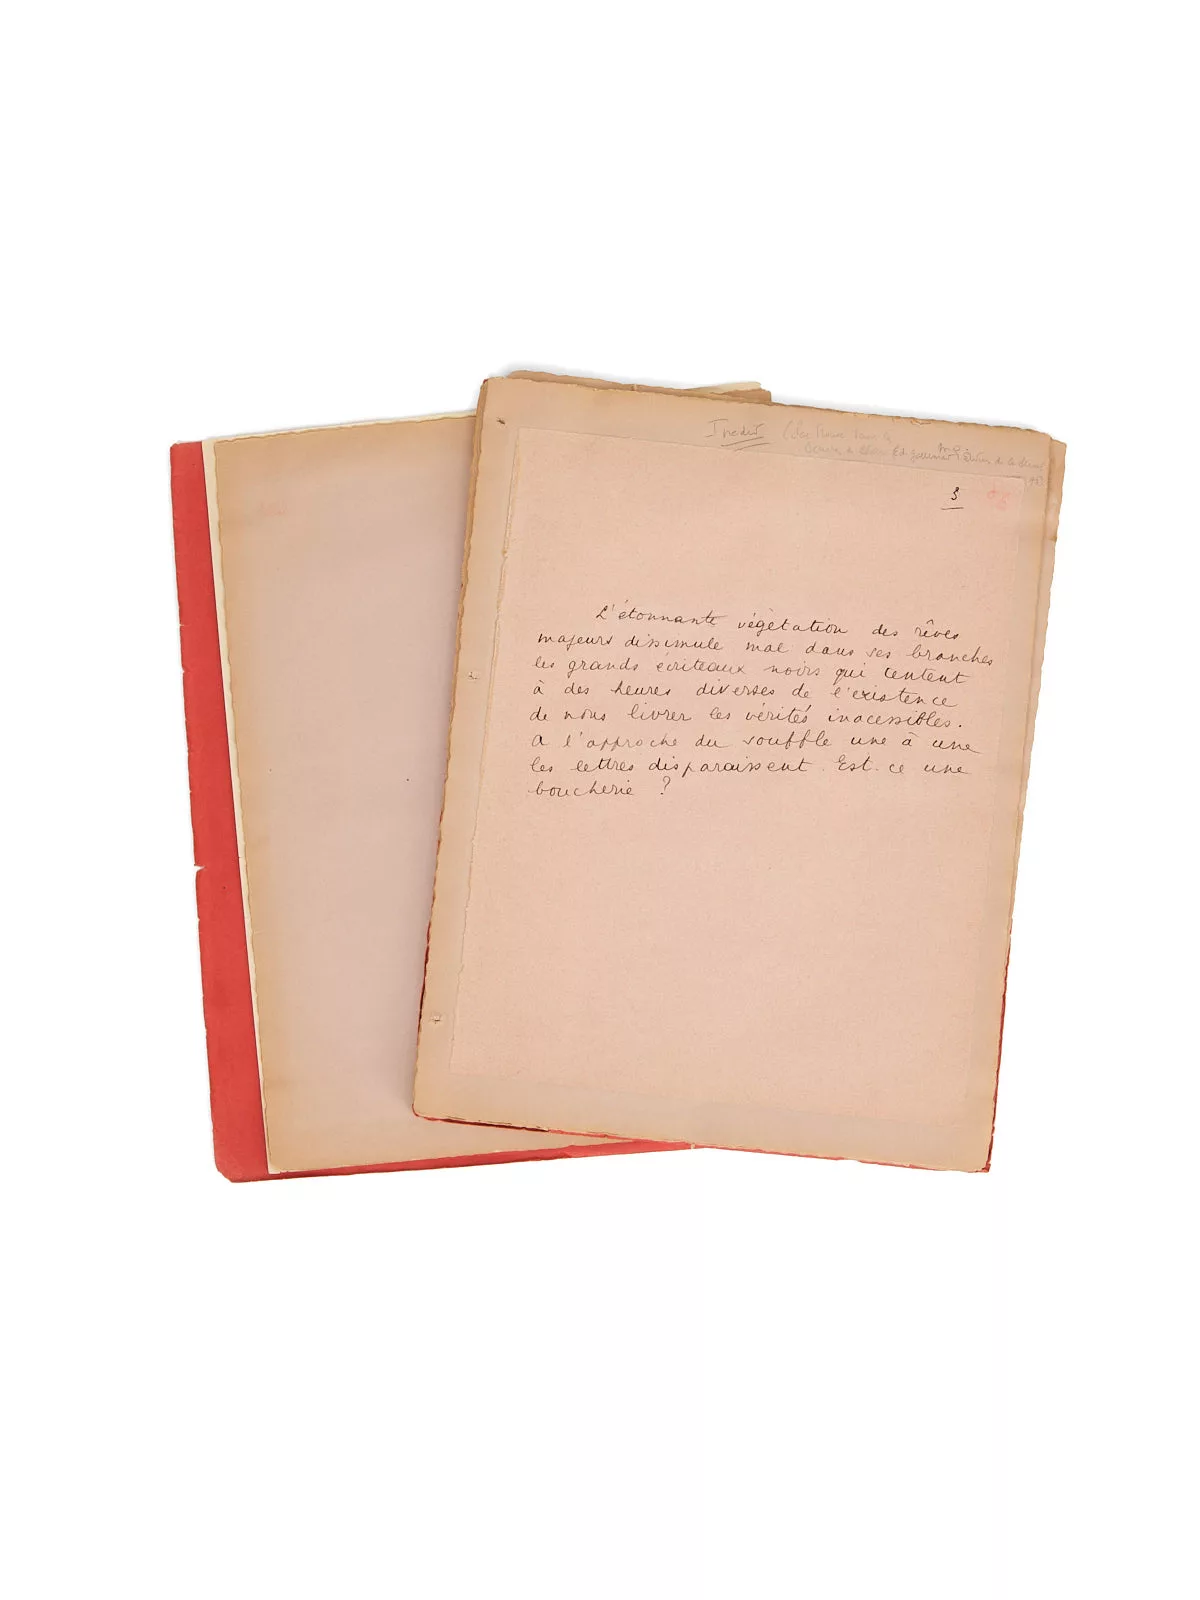 Inédit
Ed. Gallimard
3
L'étonnante végétation des rêves
majeurs dissimule mal dans ses branches
les grands écriteaux noirs qui tentent
à des heures diverses de l'existence
de nous livrer les vérités inacessibles.
A l'approche du souffle une à une
les lettres disparaissent. Est-ce une
boucherie ?